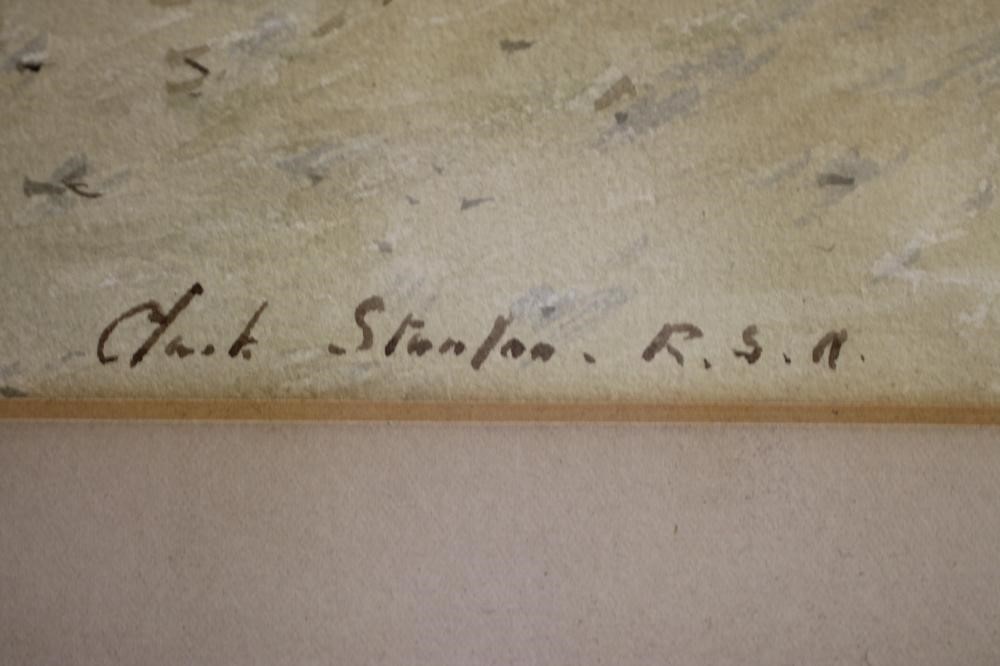 Clark Stanton. R.S.A.